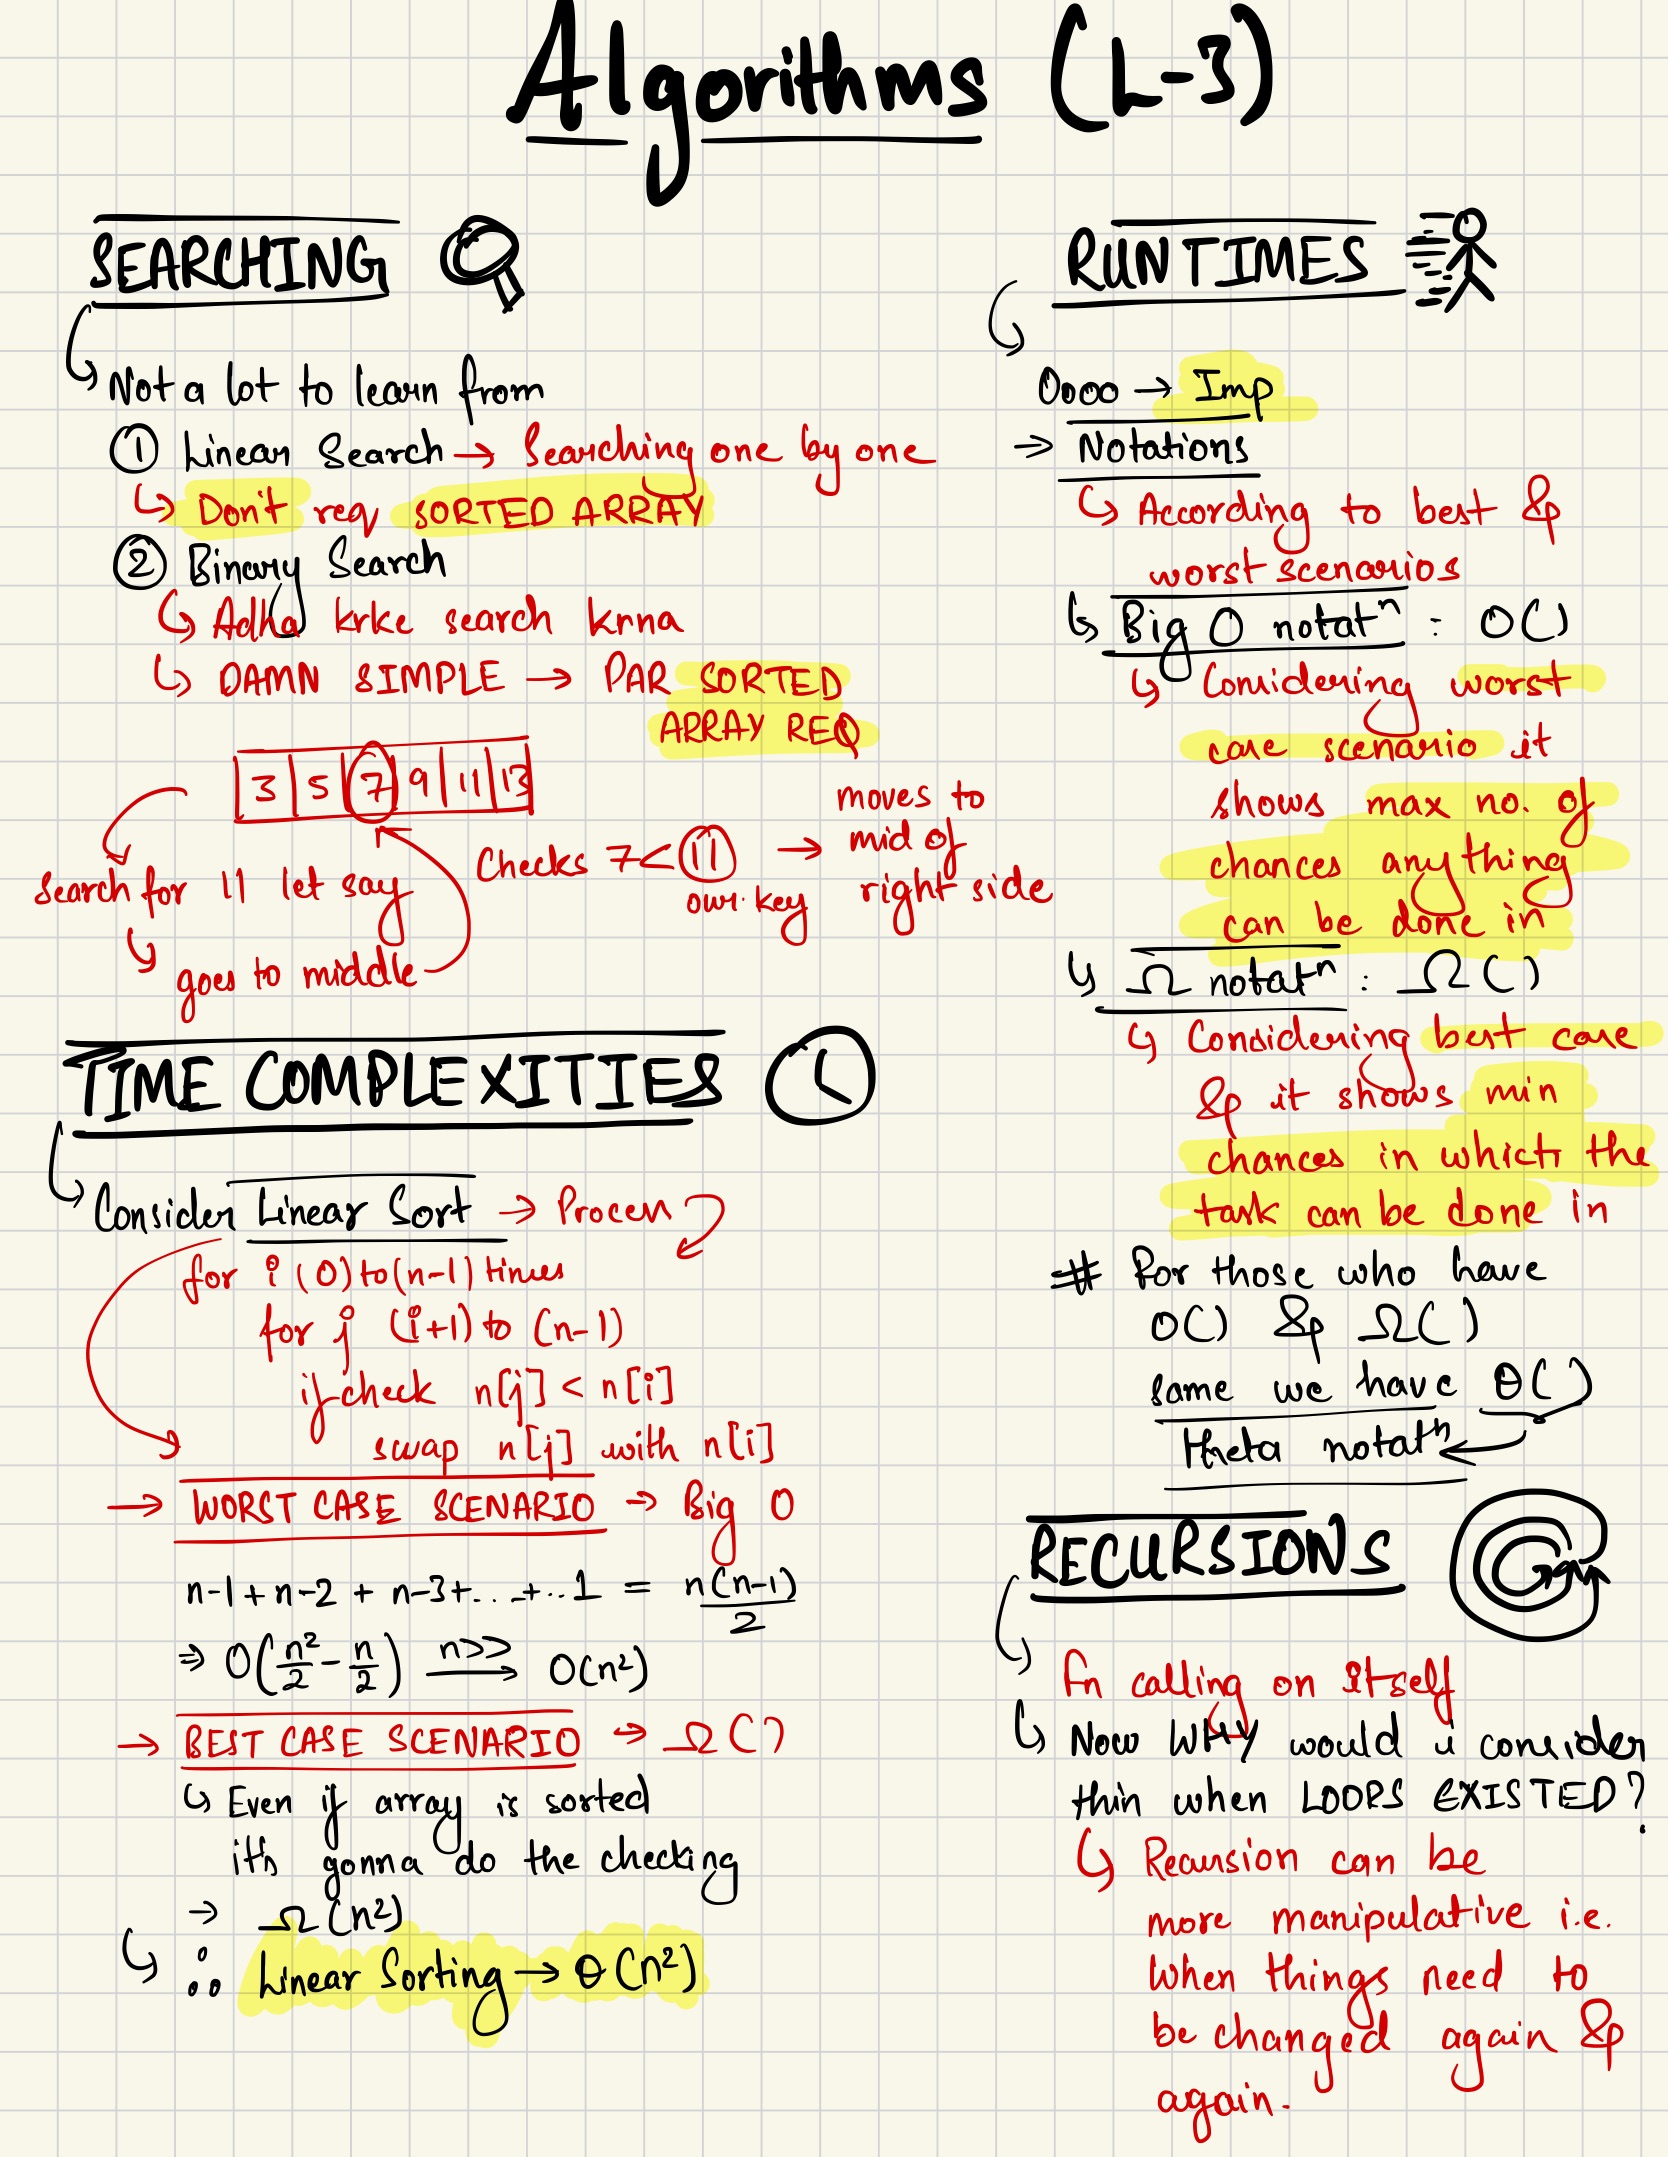 Algorithms (L-3)
SEARCHING
Not a lot to learn from
① Linear Search → Searching one by one
↳ Don't req SORTED ARRAY
② Binary Search
↳ Adha krke search krna
↳ DAMN SIMPLE → PAR SORTED
ARRAY REQ
3 | 5 | 7 | 9 | 11 | 13
search for 11 let say
↳ goes to middle
Checks 7 < 11 → moves to
mid of
right side
our key
TIME COMPLEXITIES
Consider Linear Sort → Process
for i (0) to (n-1) times
for j (i+1) to (n-1)
if check n[j] < n[i]
swap n[j] with n[i]
→ WORST CASE SCENARIO → Big O
n-1+n-2 + n-3+...+...1 = n(n-1)/2
⇒ O(n²/2 - n/2) n>> → O(n²)
→ BEST CASE SCENARIO → Ω()
↳ Even if array is sorted
it's gonna do the checking
→ Ω(n²)
↳ ∴ Linear Sorting → θ(n²)
RUNTIMES
Oooo → Imp
→ Notations
↳ According to best &
worst scenarios
↳ Big O notatⁿ : O()
↳ Considering worst
case scenario it
shows max no. of
chances anything
can be done in
↳ Ω notatⁿ : Ω()
↳ Considering best case
& it shows min
chances in which the
task can be done in
# For those who have
O() & Ω()
same we have θ()
theta notatⁿ
RECURSIONS
fn calling on itself
↳ Now WHY would u consider
this when LOOPS EXISTED?
↳ Recursion can be
more manipulative i.e.
when things need to
be changed again &
again.